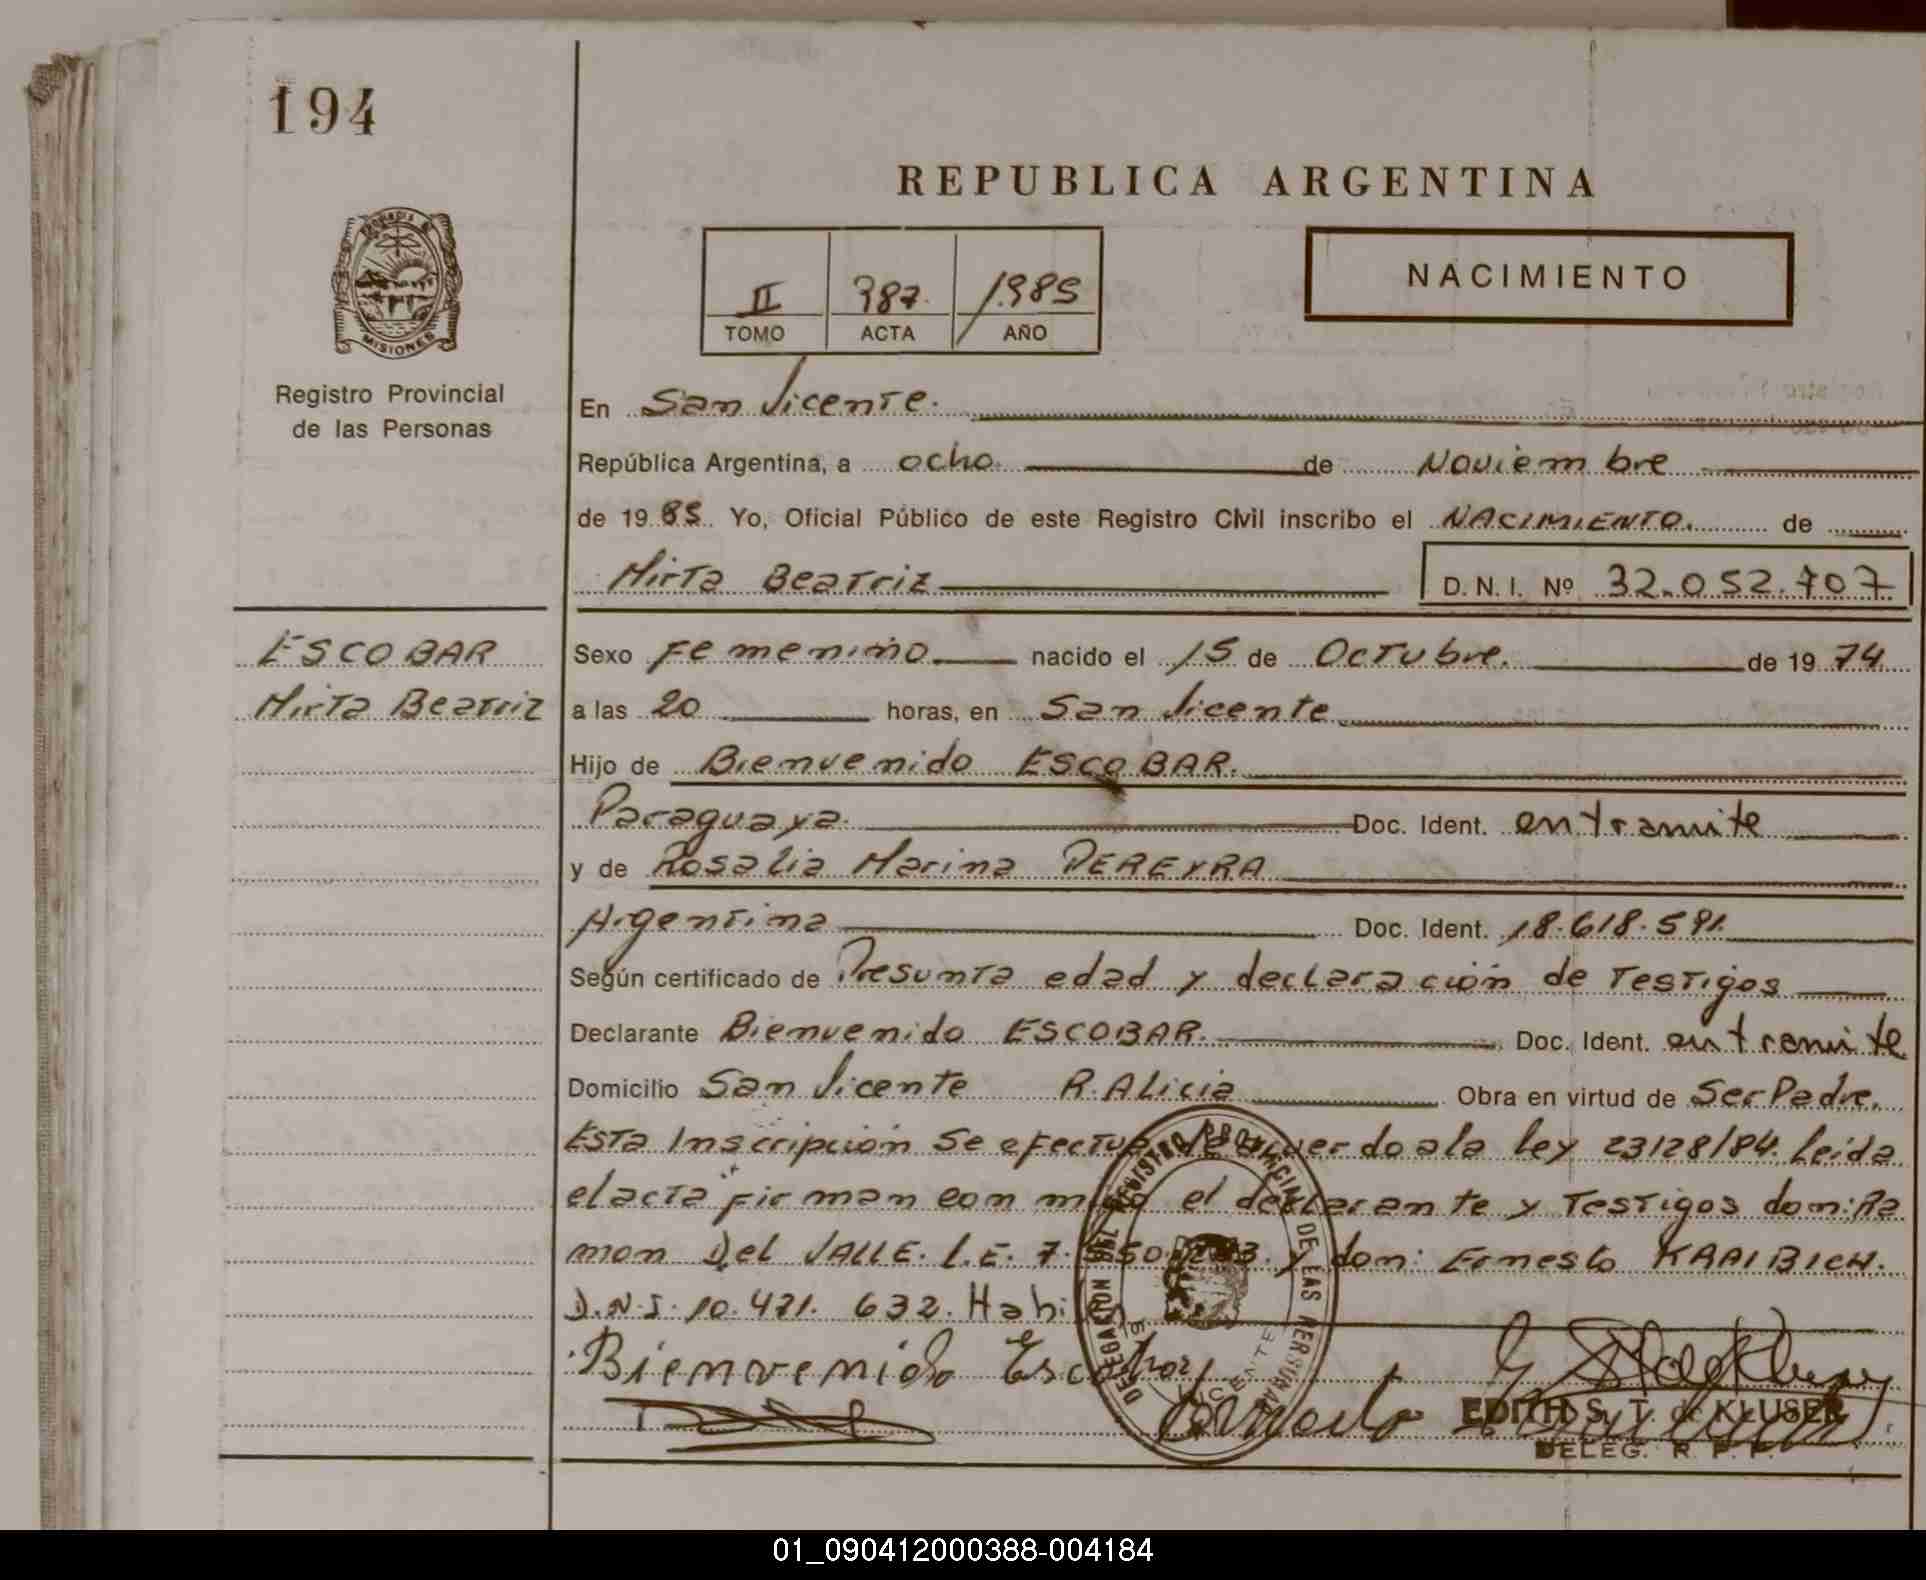 194
REPUBLICA ARGENTINA
NACIMIENTO
II 387. 1985
TOMO ACTA AÑO
MISIONES
Registro Provincial
de las Personas
En San Vicente.
República Argentina, a ocho de Noviembre
de 19 85 Yo, Oficial Público de este Registro Civil inscribo el NACIMIENTO. de
Mirta Beatriz D. N. I. Nº 32.052.707
ESCOBAR
Mirta Beatriz
Sexo Femenino nacido el 15 de Octubre. de 19 74
a las 20 horas, en San Vicente
Hijo de Bienvenido ESCOBAR.
Paraguaya. Doc. Ident. en tramite
y de Rosalia Marina PEREYRA
Argentina Doc. Ident. 18.618.591.
Según certificado de Presunta edad y declaración de Testigos
Declarante Bienvenido ESCOBAR. Doc. Ident. en tramite
Domicilio San Vicente R. Alicia Obra en virtud de Ser Padre.
Esta Inscripción Se efectua de acuerdo a la ley 23128/84. Leida
el acta firman con migo el declarante y Testigos don: Ra
mon Del VALLE. L.E. 7. y don: Ernesto KRAIBICH.
D.N.I. 10.471.632. Habi
Bienvenido Escobar
DELEGACION DEL REGISTRO PROVINCIAL DE LAS PERSONAS
VICENTE
EDITH S. T. de KLUSER
DELEG. R. P. P.
01_090412000388-004184